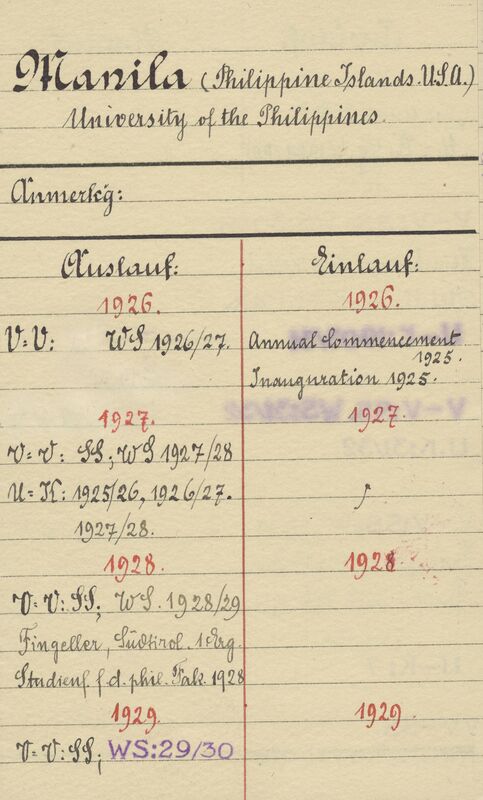 Manila (Philippine Islands. U.S.A.)
University of the Philippines.
Anmerkg:
Auslauf:
1926.
V=V: WS 1926/27.
1927.
V=V: SS; WS 1927/28
U=K: 1925/26, 1926/27.
1927/28.
1928.
V=V: SS; WS. 1928/29
Fingeller, Südtirol. 1 Erg.
Studienf. f. d. phil. Fak. 1928
1929.
V=V: SS; WS:29/30
Einlauf:
1926.
Annual Commencement
1925.
Inauguration 1925.
1927.
1928
1929